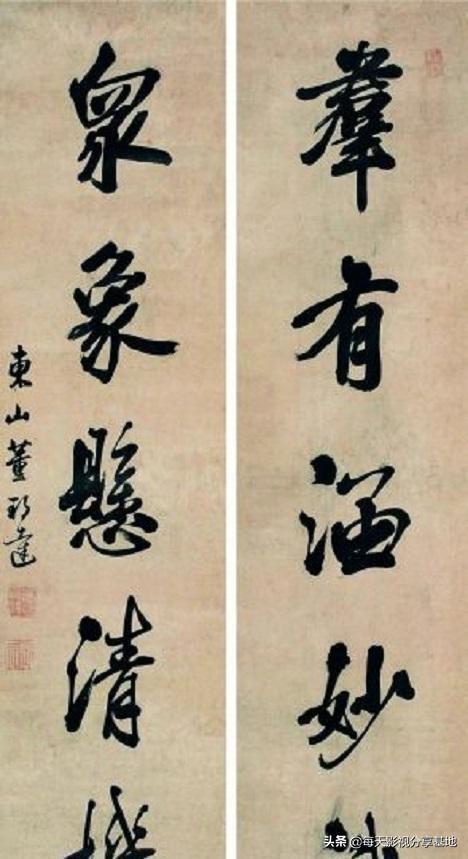 羣有涵妙
眾象懸清
東山董邦達
头条 @每天影视分享基地